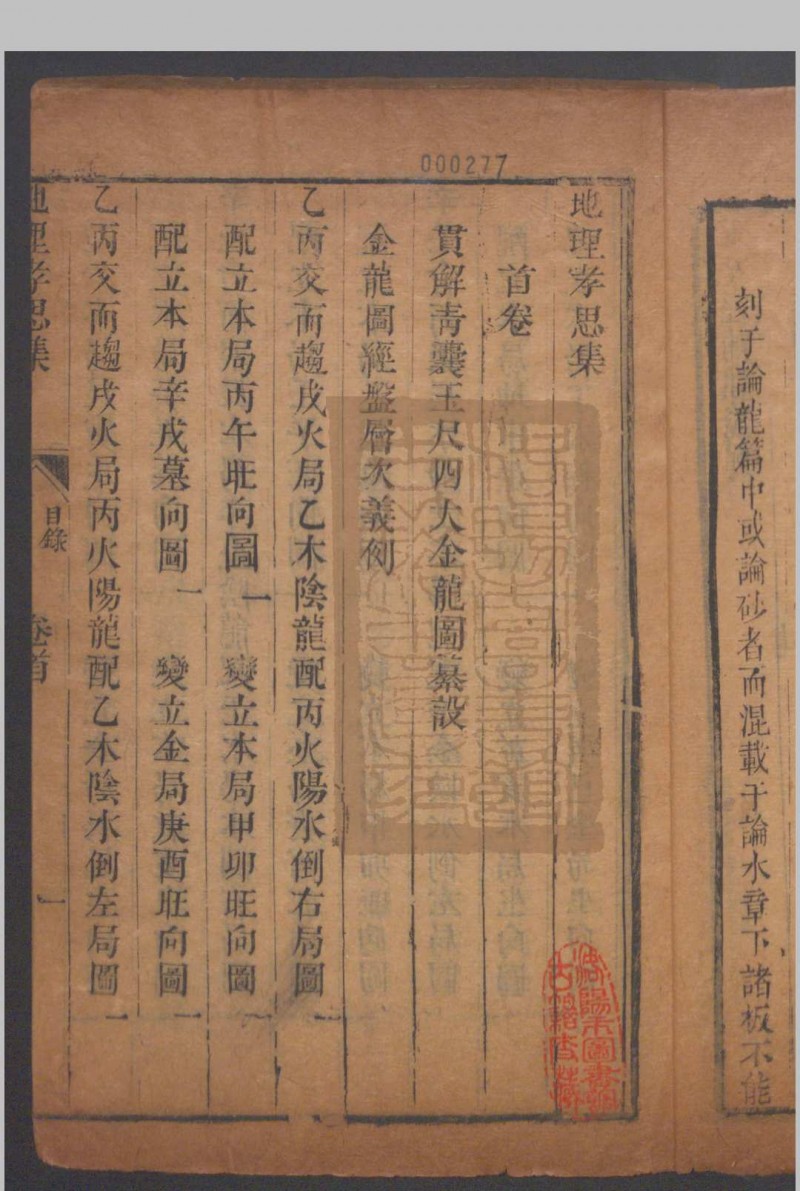 刻子論龍篇中或論砂者而混載于論水章下諸板不能
000277
地理孝思集
首卷
貫解青囊玉尺四大金龍圖纂說
金龍圖經盤層次義例
乙丙交而趨戌火局乙木陰龍配丙火陽水倒右局圖一
配立本局丙午旺向圖一 變立本局甲卯旺向圖一
配立本局辛戌墓向圖一 變立金局庚酉旺向圖一
乙丙交而趨戌火局丙火陽龍配乙木陰水倒左局圖一
地理孝思集 目錄 卷首 一